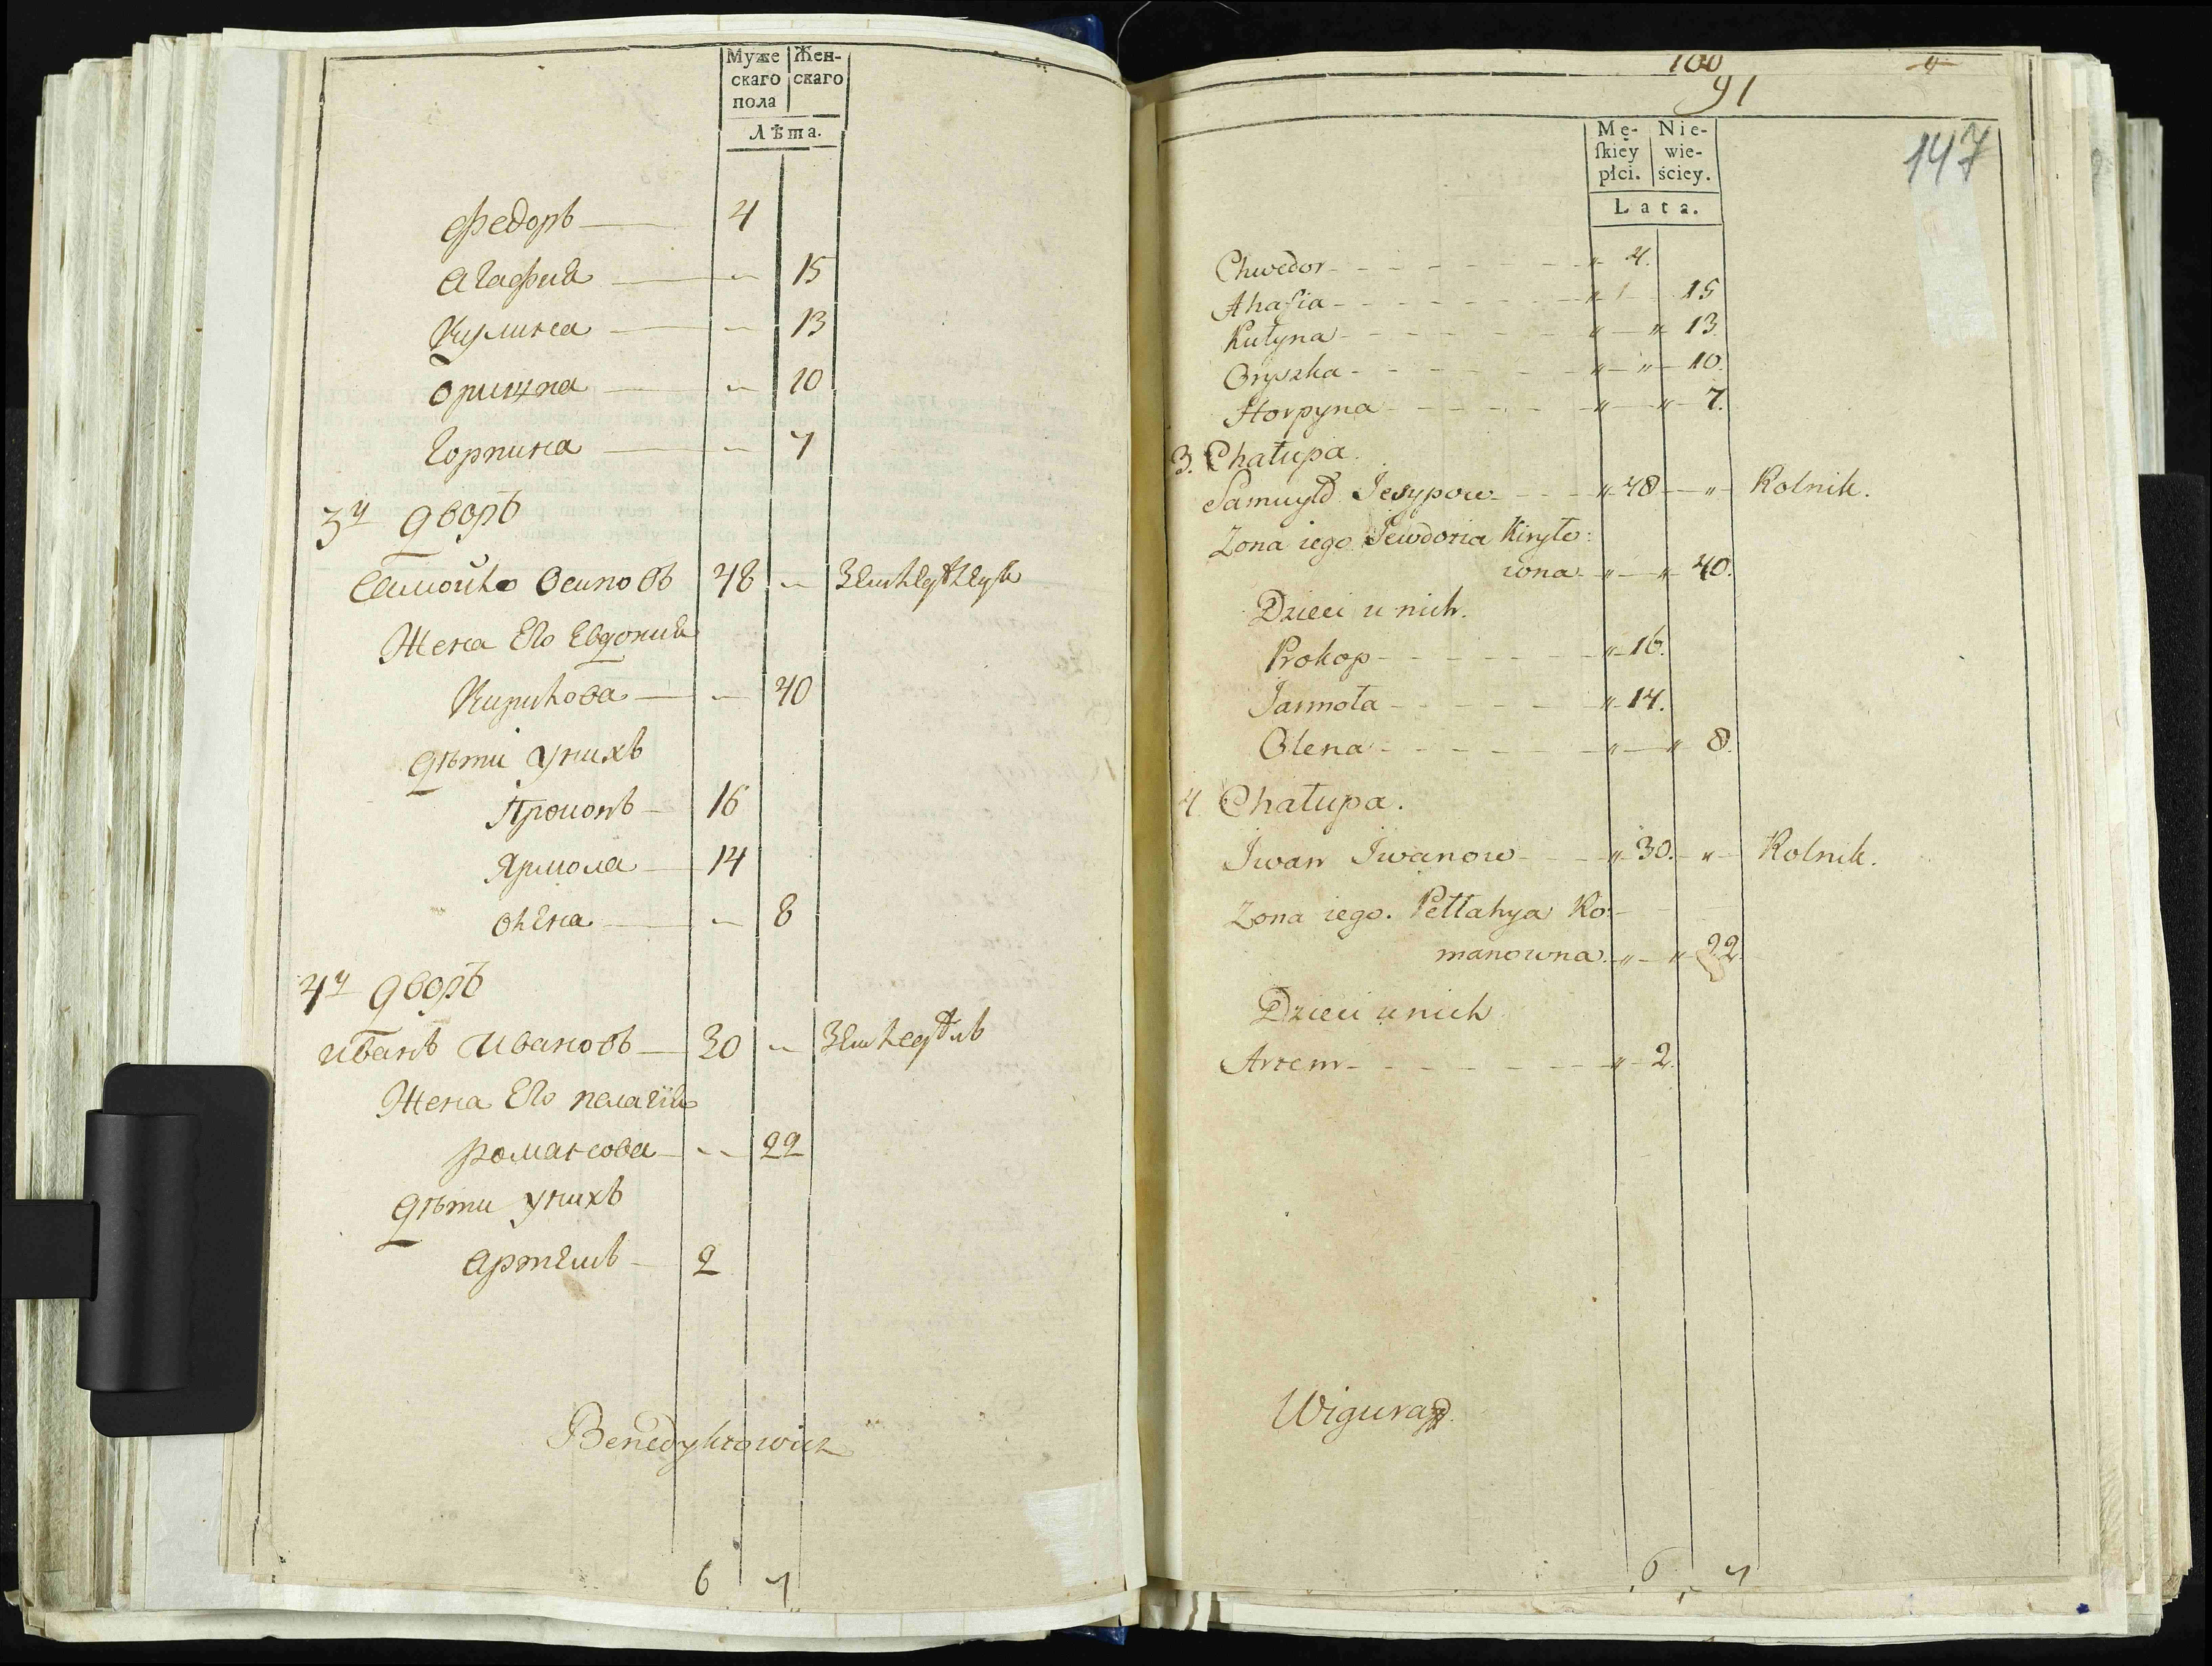 Муже Жен-
скаго скаго
пола
Лѣта.
Федоръ 4
Агафия „ 15
Кулина „ 13
Оришка „ 10
Горпина „ 7
3й дворъ
Самойло Осиповъ 48 „
Жена Его Евдокия
Кирилова „ 40
дѣти унихъ
Прокопъ 16
Ярмола 14
Олена „ 8
4й дворъ
иванъ ивановъ 30 „ Земледѣлъ
Жена Его пелагия
романова „ 22
дѣти унихъ
артемъ 2
Benedyktowicz
6 7
100 4
91
147
Mę- Nie-
ſkiey wie-
płci. ściey.
Lata.
Chwedor „ 4.
Ahafia „ 15
Kulyna „ „ 13.
Oryszka „ „ 10.
Horpyna „ „ 7.
3. Chałupa.
Samuyło Jesypow „ 48 „ Rolnik.
Zona iego Jewdoria Kiryło:
wna „ „ 40.
Dzieci u nich.
Prokop „ 16.
Jarmoła „ 14.
Olena „ „ 8.
4 Chałupa.
Iwan Iwanow „ 30. „ Rolnik.
Zona iego. Pellahya Ro:
manowna. „ „ 22.
Dzieci u nich
Artem „ 2.
Wigura
6 7